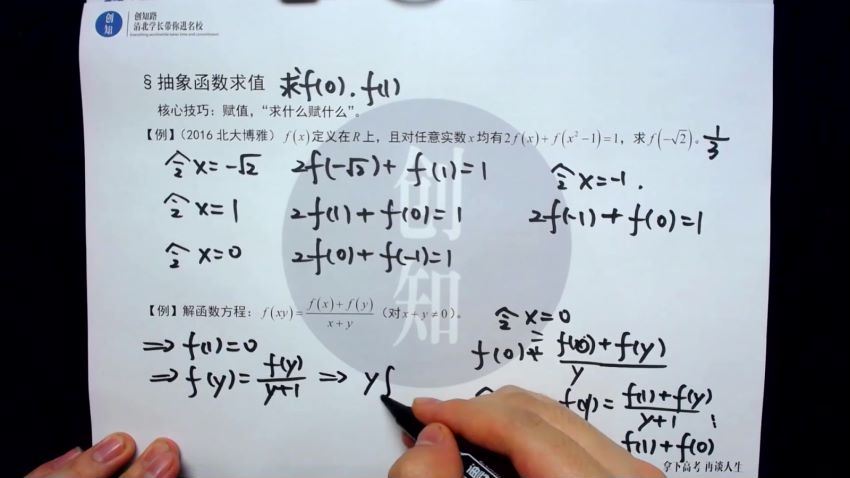 创知
创知路
清北学长带你进名校
§ 抽象函数求值 求f(0).f(1)
核心技巧：赋值，“求什么赋什么”。
【例】（2016 北大博雅） f(x)定义在R上，且对任意实数x均有2f(x)+f(x²-1)=1，求f(-√2)。 1/3
令 x=-√2 2f(-√2)+f(1)=1 令 x=-1.
令 x=1 2f(1)+f(0)=1 2f(-1)+f(0)=1
令 x=0 2f(0)+f(-1)=1
创知
【例】解函数方程：f(xy)=(f(x)+f(y))/(x+y)（对x+y≠0）。 令 x=0
⇒ f(1)=0 f(0)= (f(0)+f(y))/y
⇒ f(y)= f(y)/(y+1) ⇒ y f(y)= (f(1)+f(y))/(y+1)
f(1)+f(0)
拿下高考 再谈人生